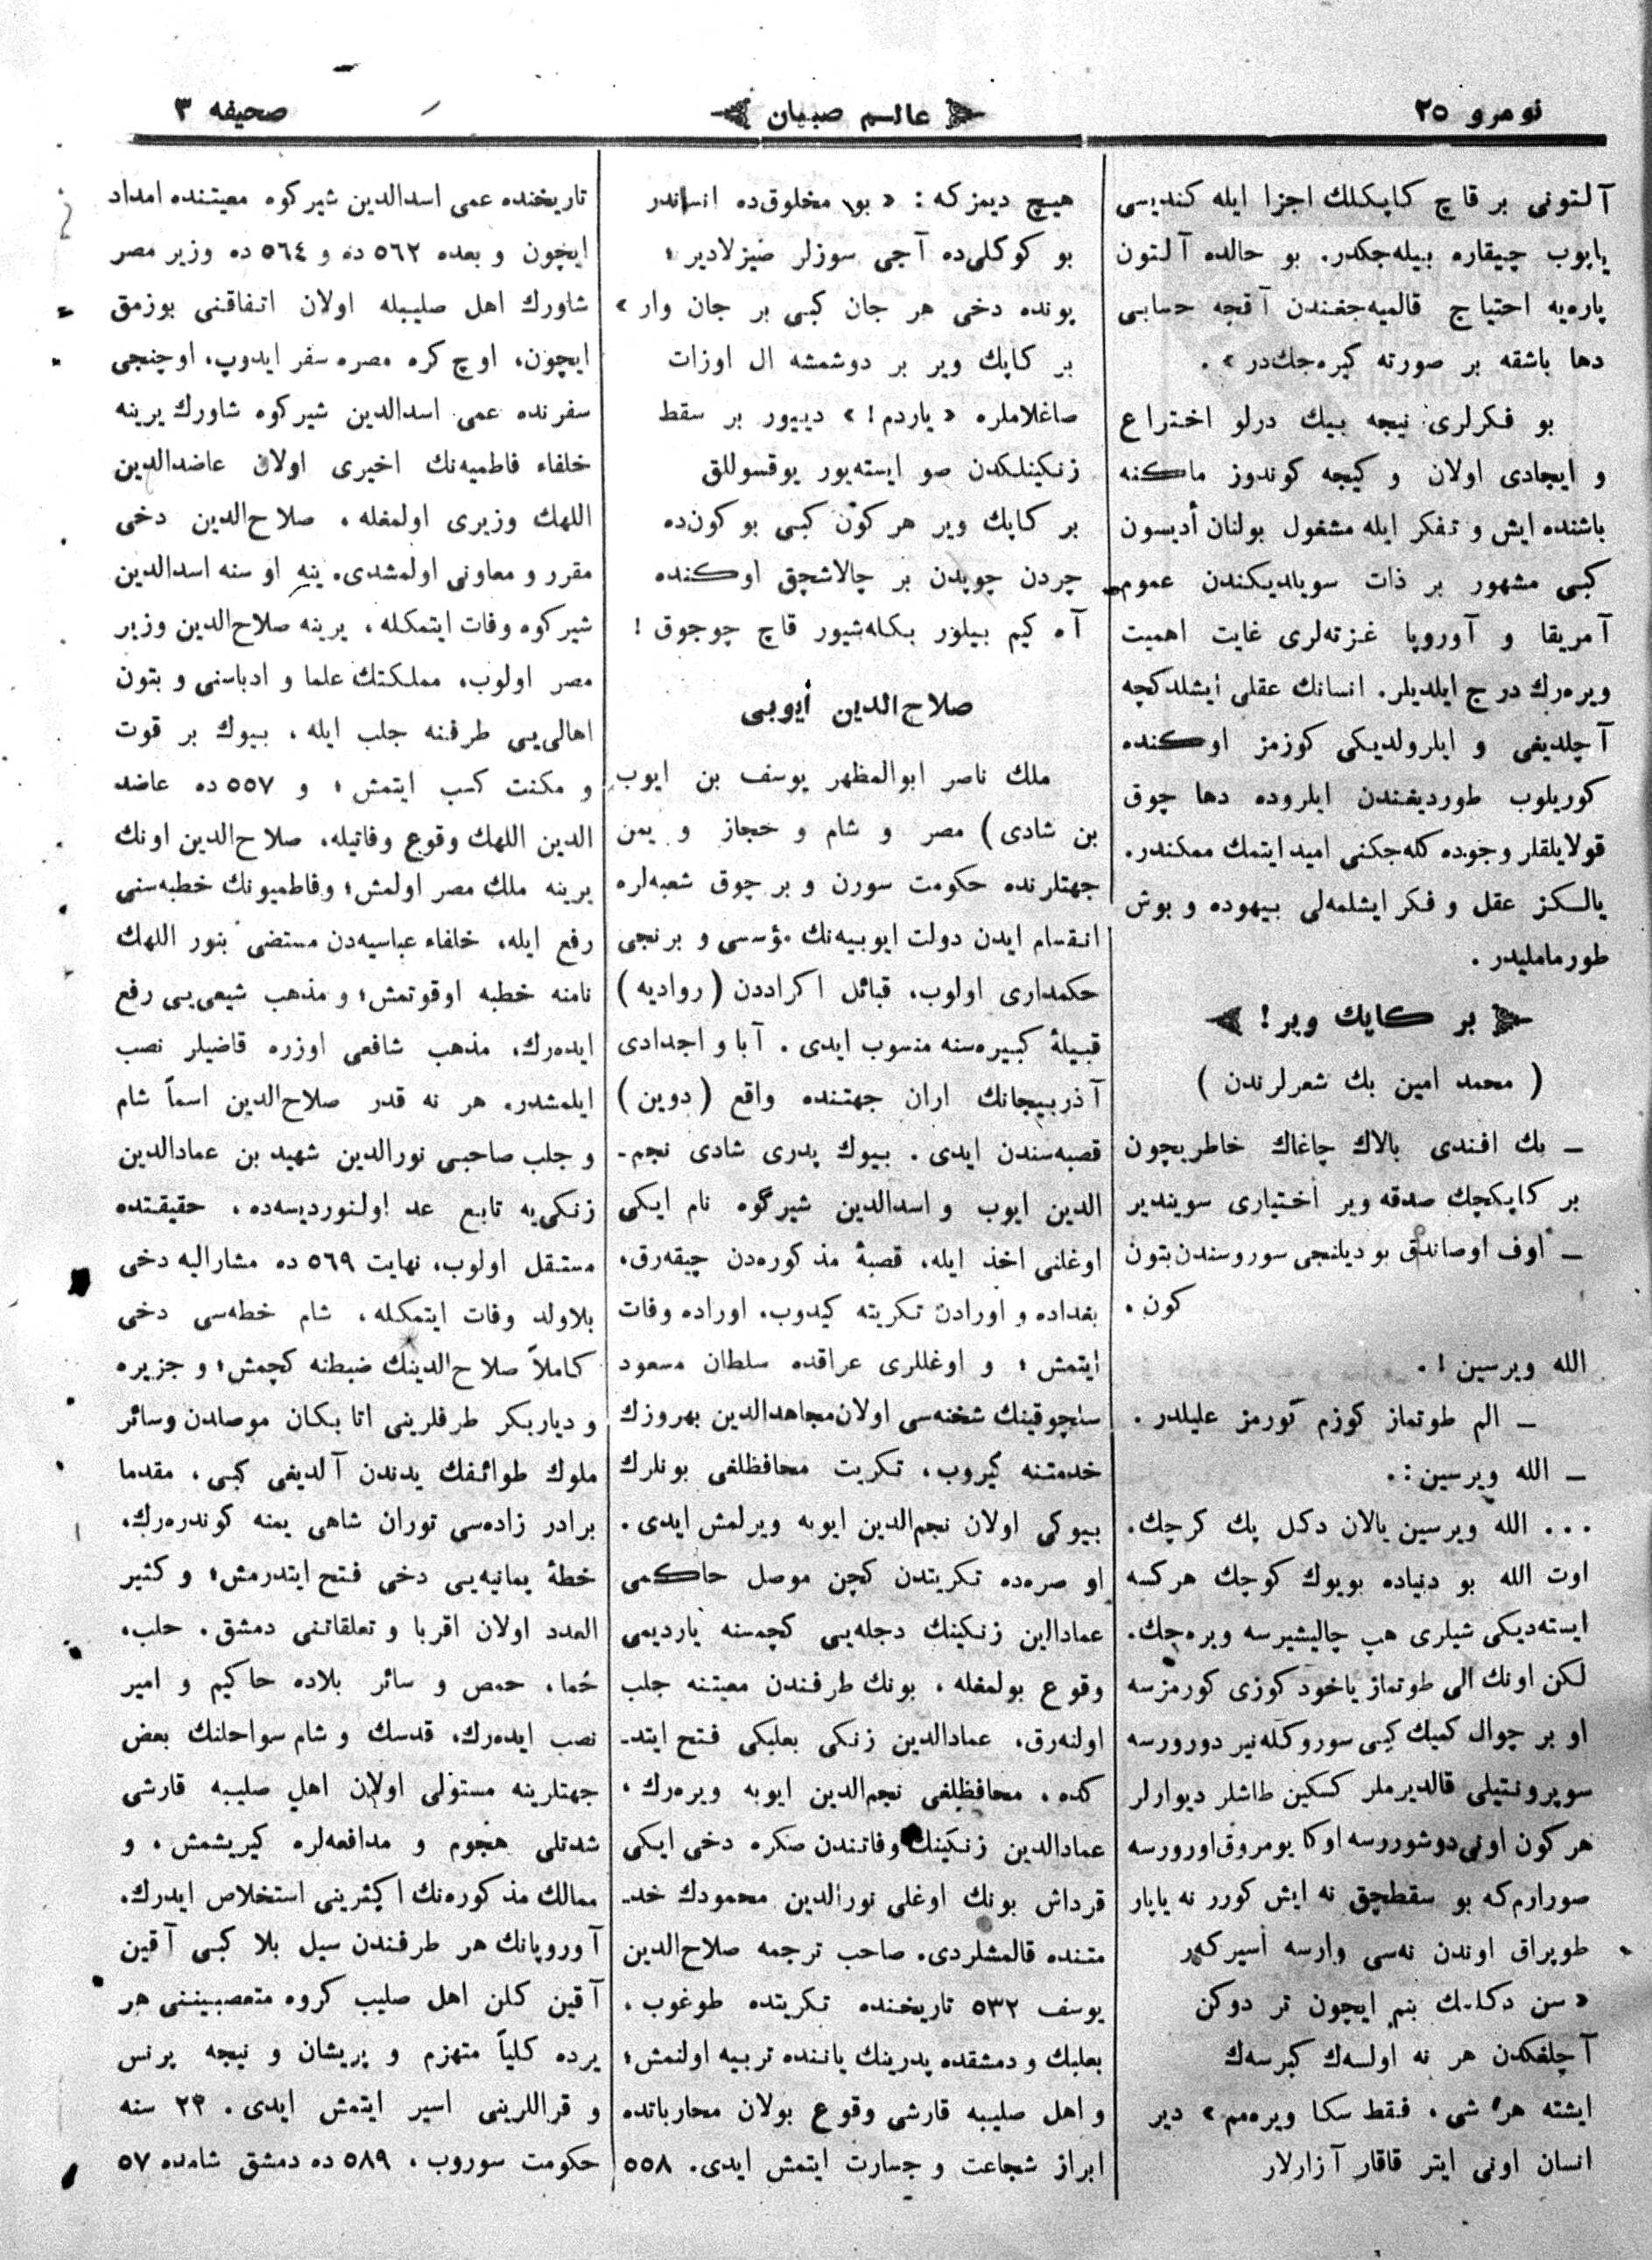 نومرو ٢٥
عالم صبيان
صحيفه ٣
آلتونى بر قاچ كاپكلك اجزا ايله كنديسى
ياپوب چيقاره بيله‌جكدر. بو حالده آلتون
پاره‌يه احتياج قالميه‌جغندن آقچه حسابى
دها باشقه بر صورته كيره‌جك‌در» .
بو فكرلرى نيجه بيك درلو اختراع
و ايجادى اولان و كيجه كوندوز ماكنه
باشنده ايش و تفكر ايله مشغول بولنان أديسون
كبى مشهور بر ذات سويلديكندن عموم
آمريقا و آوروپا غزته‌لرى غايت اهميت
ويره‌رك درج ايلديلر. انسانك عقلى ايشلدكچه
آچلديغى و ايلرولديكى كوزمز اوكنده
كوريلوب طورديغندن ايلروده دها چوق
قولايلقلر وجوده كله‌جكنى اميد ايتمك ممكندر.
يالكز عقل و فكر ايشلمه‌لى بيهوده و بوش
طورماملیدر .
بر كاپك وير!
( محمد امين بك شعرلرندن )
ـ بك افندى بالاك چاغاك خاطريچون
بر كاپكچك صدقه وير أختيارى سوينديير
ـ اوف اوصاندق بو ديلنجى سوروسندن بتون
كون .
الله ويرسين ! .
ـ الم طوتماز كوزم كورمز عليلدر .
ـ الله ويرسين : .
... الله ويرسين يالان دكل پك كرچك.
اوت الله بو دنياده بويوك كوچك هركسه
ايسته‌ديكى شيلرى هپ چاليشيرسه ويره‌جك.
لكن اونك الى طوتماز ياخود كوزى كورمزسه
او بر چوال كميك كبى سوروكله‌نير دورورسه
سوپرونتيلى قالديرملر كسكين طاشلر ديوارلر
هر كون اونى دوشوررسه اوكا يومروق اورورسه
صورارم كه بو سقطجق نه ايش كورر نه ياپار
طوپراق اوندن نه‌سى وارسه أسيركه‌ر
« سن دكلمك بنم ايچون تر دوكن
آچلغكدن هر نه اولسه‌ك كبرسه‌ك
ايشته هر شى ، فقط سكا ويره‌مم» دير
انسان اونى ايتر قاقار آزارلار
هيچ ديمزكه : « بو مخلوق‌ده انساندر
بو كوكلى‌ده آجى سوزلر ضيزلادير ؛
بونده دخى هر جان كبى بر جان وار »
بر كاپك وير بر دوشمشه ال اوزات
صاغلاملره « ياردم! » دييور بر سقط
زنكينلكدن صو ايسته‌يور يوقسوللق
بر كاپك وير هر كون كبى بو كون‌ده
چردن چوپدن بر چالاشچق اوكنده
آه كيم بيلور بكله‌شيور قاچ چوجوق !
صلاح‌الدين أيوبى
ملك ناصر ابوالمظهر يوسف بن ايوب
بن شادى) مصر و شام و حجاز و يمن
جهتلرنده حكومت سورن و بر چوق شعبه‌لره
انقسام ايدن دولت ايوبيه‌نك مؤسسى و برنجى
حكمدارى اولوب، قبائل اكراددن (رواديه)
قبيلۀ كبيره‌سنه منسوب ايدى . آبا و اجدادى
آذربيجانك اران جهتنده واقع (دوين)
قصبه‌سندن ايدى . بيوك پدرى شادى نجم‌ـ
الدين ايوب و اسدالدين شيرگوه نام ايكى
اوغلنى اخذ ايله، قصبۀ مذكوره‌دن چيقه‌رق،
بغداده و اورادن تكريته كيدوب، اوراده وفات
ايتمش ؛ و اوغللرى عراقده سلطان مسعود
سلچوقينك شخنه‌سى اولان مجاهدالدين بهروزك
خدمتنه كيروب، تكريت محافظلغى بونلرك
بيوكى اولان نجم‌الدين ايوبه ويرلمش ايدى.
او صره‌ده تكريتدن كچن موصل حاكمى
عمادالين زنكينك دجله‌يى كچه‌سنه يارديمى
وقوع بولمغله ، بونك طرفندن معيتنه جلب
اولنه‌رق، عمادالدين زنكى بعلبكى فتح ايتدـ
كده ، محافظلغى نجم‌الدين ايوبه ويره‌رك ،
عمادالدين زنكينك وفاتندن صكره دخى ايكى
قرداش بونك اوغلى نورالدين محمودك خدـ
متنده قالمشلردى. صاحب ترجمه صلاح‌الدين
يوسف ٥٣٢ تاريخنده تكريتده طوغوب ،
بعلبك و دمشقده پدرينك ياننده تربيه اولنمش؛
و اهل صليبه قارشى وقوع بولان محارباتده
ابراز شجاعت و جسارت ايتمش ايدى. ٥٥٨
تاريخنده عمى اسدالدين شيركوه معيتنده امداد
ايچون و بعده ٥٦٢ ده و ٥٦٤ ده وزير مصر
شاورك اهل صليبله اولان اتفاقنى بوزمق
ايچون، اوچ كره مصره سفر ايدوپ، اوچنجى
سفرنده عمى اسدالدين شيركوه شاورك يرينه
خلفاء فاطميه‌نك اخيرى اولان عاضدالدين
اللهك وزيرى اولمغله ، صلاح‌الدين دخى
مقرر و معاونى اولمشدى. ينه او سنه اسدالدين
شيركوه وفات ايتمكله ، يرينه صلاح‌الدين وزير
مصر اولوب، مملكتك علما و ادباسنى و بتون
اهالى‌يى طرفنه جلب ايله ، بيوك بر قوت
و مكنت كسب ايتمش ؛ و ٥٥٧ ده عاضد
الدين اللهك وقوع وفاتيله، صلاح‌الدين اونك
يرينه ملك مصر اولمش؛ و فاطميونك خطبه‌سنى
رفع ايله، خلفاء عباسيه‌دن مستضى بنور اللهك
نامنه خطبه اوقوتمش؛ و مذهب شيعى‌يى رفع
ايده‌رك، مذهب شافعى اوزره قاضيلر نصب
ايلمشدر. هر نه قدر صلاح‌الدين اسماً شام
و جلب صاحبى نورالدين شهيد بن عمادالدين
زنكى‌يه تابع عد اولنورديسه‌ده ، حقيقتده
مستقل اولوب، نهايت ٥٦٩ ده مشاراليه دخى
بلاولد وفات ايتمكله ، شام خطه‌سى دخى
كاملاً صلاح‌الدينك ضبطنه كچمش؛ و جزيره
و دياربكر طرفلرينى اتابكان موصلدن وسائر
ملوك طوائفك يدندن آلديغى كبى ، مقدما
برادر زاده‌سى توران شاهى يمنه كوندره‌رك،
خطۀ يمانيه‌يى دخى فتح ايتدرمش؛ و كثير
العدد اولان اقربا و تعلقاتنى دمشق . حلب،
حُما، حمص و سائر بلاده حاكيم و امير
نصب ايده‌رك، قدسك و شام سواحلنك بعض
جهتلرينه مستولى اولان اهل صليبه قارشى
شدتلى هجوم و مدافعه‌لره كيريشمش ، و
ممالك مذكوره‌نك اكثرينى استخلاص ايدرك.
آوروپانك هر طرفندن سيل بلا كبى آقين
آقين كلن اهل صليب كروه متعصبيننى هر
يرده كلياً منهزم و پريشان و نيجه پرنس
و قراللرينى اسير ايتمش ايدى . ٢٣ سنه
حكومت سوروب ، ٥٨٩ ده دمشق شامده ٥٧